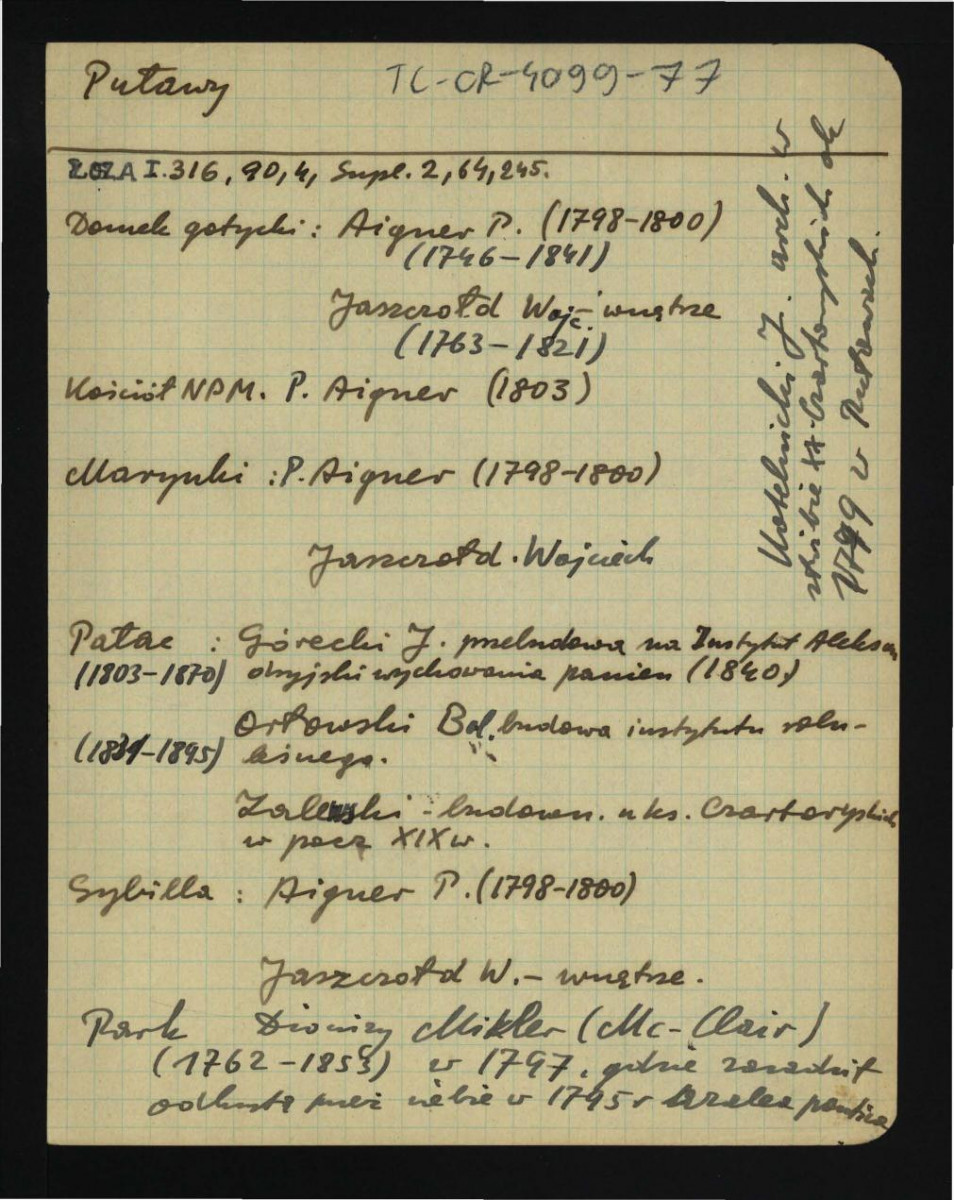 Puławy TC-OR-4099-77
ŁOZA I.316, 90, 4, Supl. 2, 64, 245.
Domek gotycki: Aigner P. (1798-1800)
(1746-1841)
Jaszczołd Wojc.- wnętrze
(1763-1821)
Kościół NPM. P. Aigner (1803)
Marynki: P. Aigner (1798-1800)
Jaszczołd. Wojciech
Pałac: Górecki J. przebudowa na Instytut Aleksan
(1803-1870) dryjski wychowania panien (1840)
Orłowski Bol. budowa instytutu roln-
(1831-1895) leśnego.
Zalewski - budown. u ks. Czartoryskich
w pocz XIX w.
Sybilla: Aigner P. (1798-1800)
Jaszczołd W. - wnętrze.
Park Dionizy Mikler (Mc-Clair)
(1762-1853) w 1797, gdzie zasadził
odkrytą przez siebie w 1795 r Azalea pontica
J. arch. w
służbie XX Czartoryskich ok
1799 w Puławach.